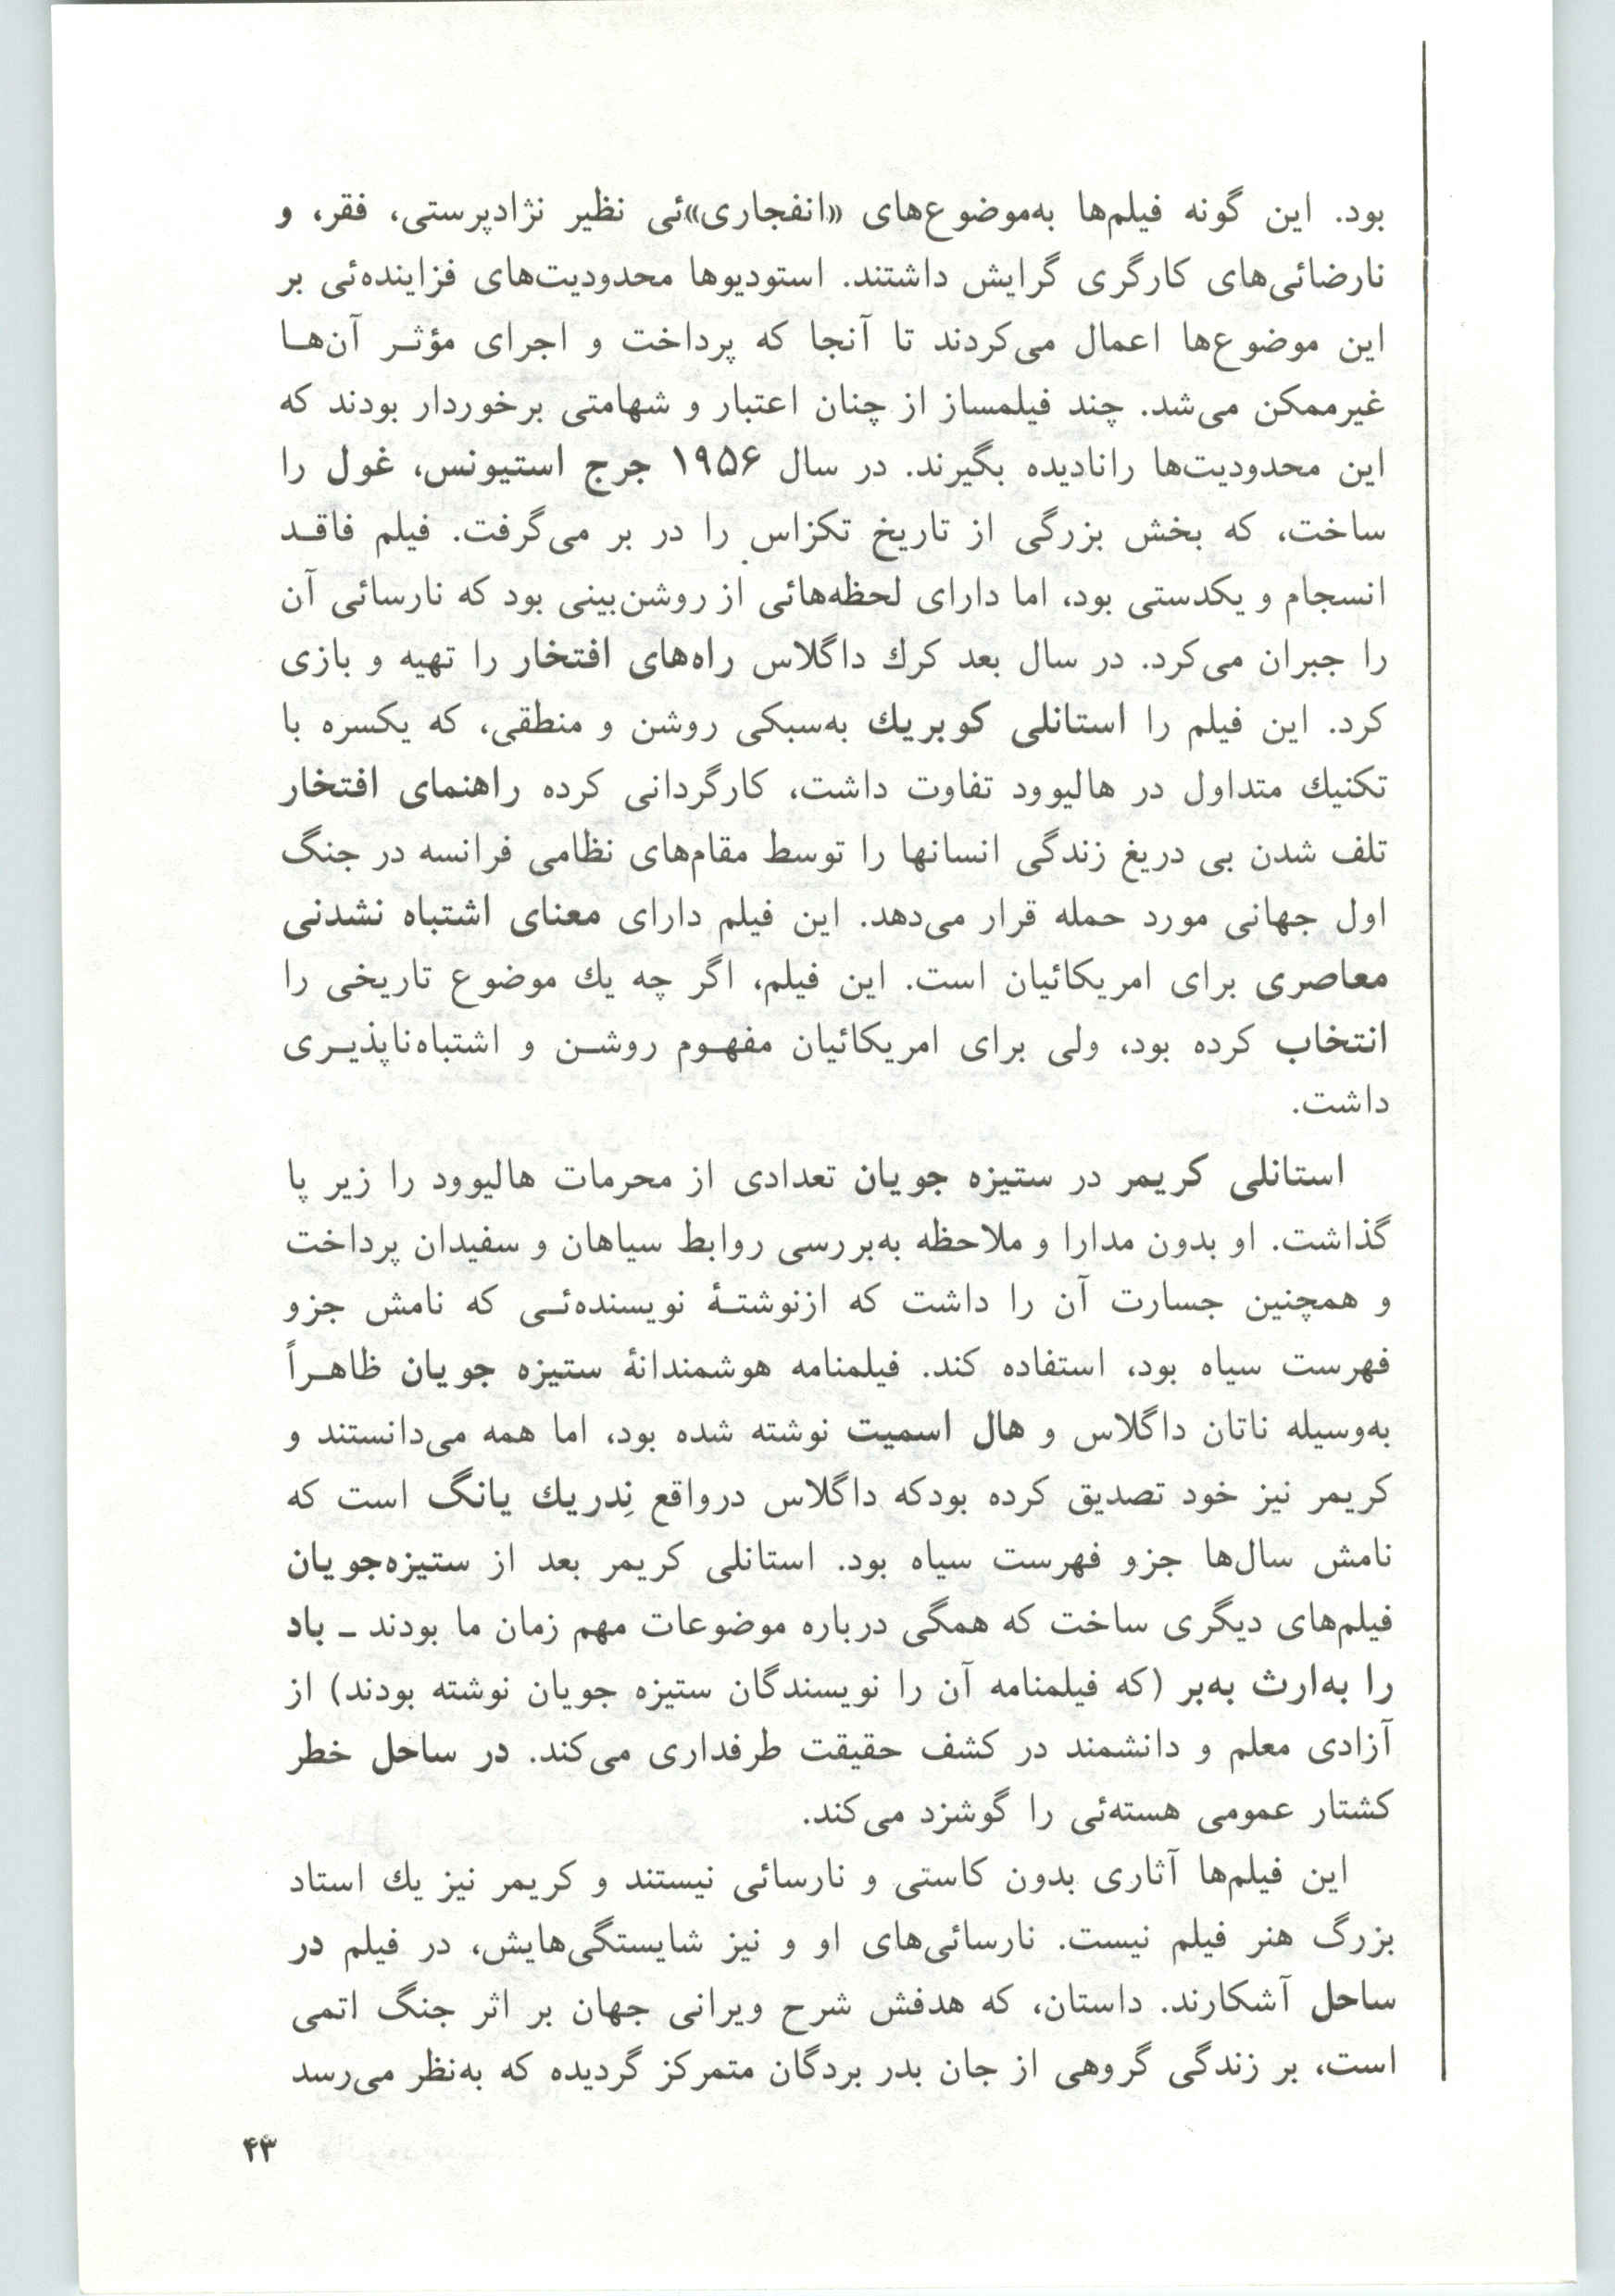 بود. این گونه فیلم‌ها به‌موضوع‌های «انفجاری»ئی نظیر نژادپرستی، فقر، و
نارضائی‌های کارگری گرایش داشتند. استودیوها محدودیت‌های فزاینده‌ئی بر
این موضوع‌ها اعمال می‌کردند تا آنجا که پرداخت و اجرای مؤثـر آن‌هـا
غیرممکن می‌شد. چند فیلمساز از چنان اعتبار و شهامتی برخوردار بودند که
این محدودیت‌ها رانادیده بگیرند. در سال ۱۹۵۶ جرج استیونس، غول را
ساخت، که بخش بزرگی از تاریخ تکزاس را در بر می‌گرفت. فیلم فاقـد
انسجام و یکدستی بود، اما دارای لحظه‌هائی از روشن‌بینی بود که نارسائی آن
را جبران می‌کرد. در سال بعد کرك داگلاس راه‌های افتخار را تهیه و بازی
کرد. این فیلم را استانلی کوبریك به‌سبکی روشن و منطقی، که یکسره با
تکنیك متداول در هالیوود تفاوت داشت، کارگردانی کرده راهنمای افتخار
تلف شدن بی دریغ زندگی انسانها را توسط مقام‌های نظامی فرانسه در جنگ
اول جهانی مورد حمله قرار می‌دهد. این فیلم دارای معنای اشتباه نشدنی
معاصری برای امریکائیان است. این فیلم، اگر چه یك موضوع تاریخی را
انتخاب کرده بود، ولی برای امریکائیان مفهـوم روشـن و اشتباه‌ناپذیـری
داشت.
استانلی کریمر در ستیزه جویان تعدادی از محرمات هالیوود را زیر پا
گذاشت. او بدون مدارا و ملاحظه به‌بررسی روابط سیاهان و سفیدان پرداخت
و همچنین جسارت آن را داشت که ازنوشتـۀ نویسنده‌ئـی که نامش جزو
فهرست سیاه بود، استفاده کند. فیلمنامه هوشمندانۀ ستیزه جویان ظاهـراً
به‌وسیله ناتان داگلاس و هال اسمیت نوشته شده بود، اما همه می‌دانستند و
کریمر نیز خود تصدیق کرده بودکه داگلاس درواقع نِدریك یانگ است که
نامش سال‌ها جزو فهرست سیاه بود. استانلی کریمر بعد از ستیزه‌جویان
فیلم‌های دیگری ساخت که همگی درباره موضوعات مهم زمان ما بودند ـ باد
را به‌ارث به‌بر (که فیلمنامه آن را نویسندگان ستیزه جویان نوشته بودند) از
آزادی معلم و دانشمند در کشف حقیقت طرفداری می‌کند. در ساحل خطر
کشتار عمومی هسته‌ئی را گوشزد می‌کند.
این فیلم‌ها آثاری بدون کاستی و نارسائی نیستند و کریمر نیز یك استاد
بزرگ هنر فیلم نیست. نارسائی‌های او و نیز شایستگی‌هایش، در فیلم در
ساحل آشکارند. داستان، که هدفش شرح ویرانی جهان بر اثر جنگ اتمی
است، بر زندگی گروهی از جان بدر بردگان متمرکز گردیده که به‌نظر می‌رسد
۴۳